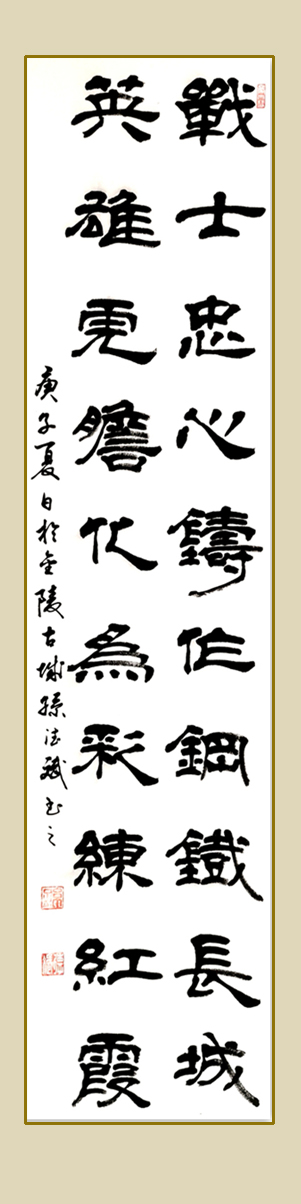 戰士忠心鑄作鋼鐵長城
英雄虎膽化為彩練紅霞
庚子夏日於金陵古城孫書之